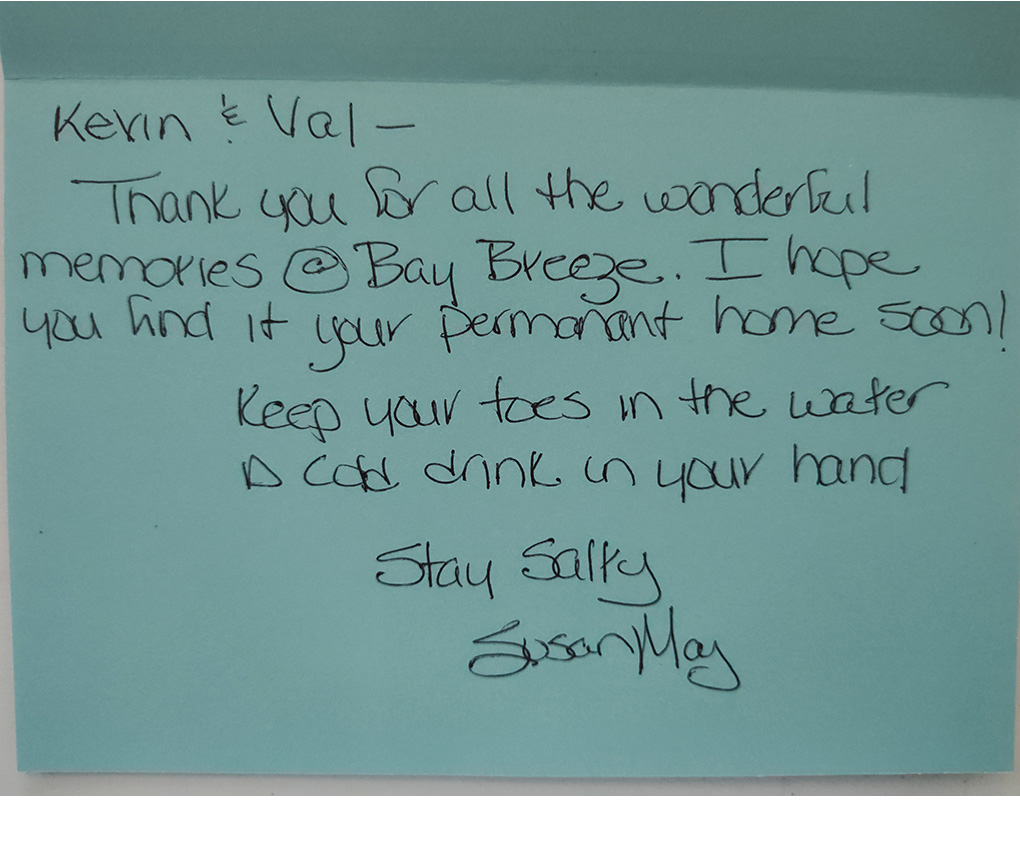 Kevin & Val —
Thank you for all the wonderful
memories @ Bay Breeze. I hope
you find it your permanant home soon!
Keep your toes in the water
A cold drink in your hand
Stay Salty
Susan May